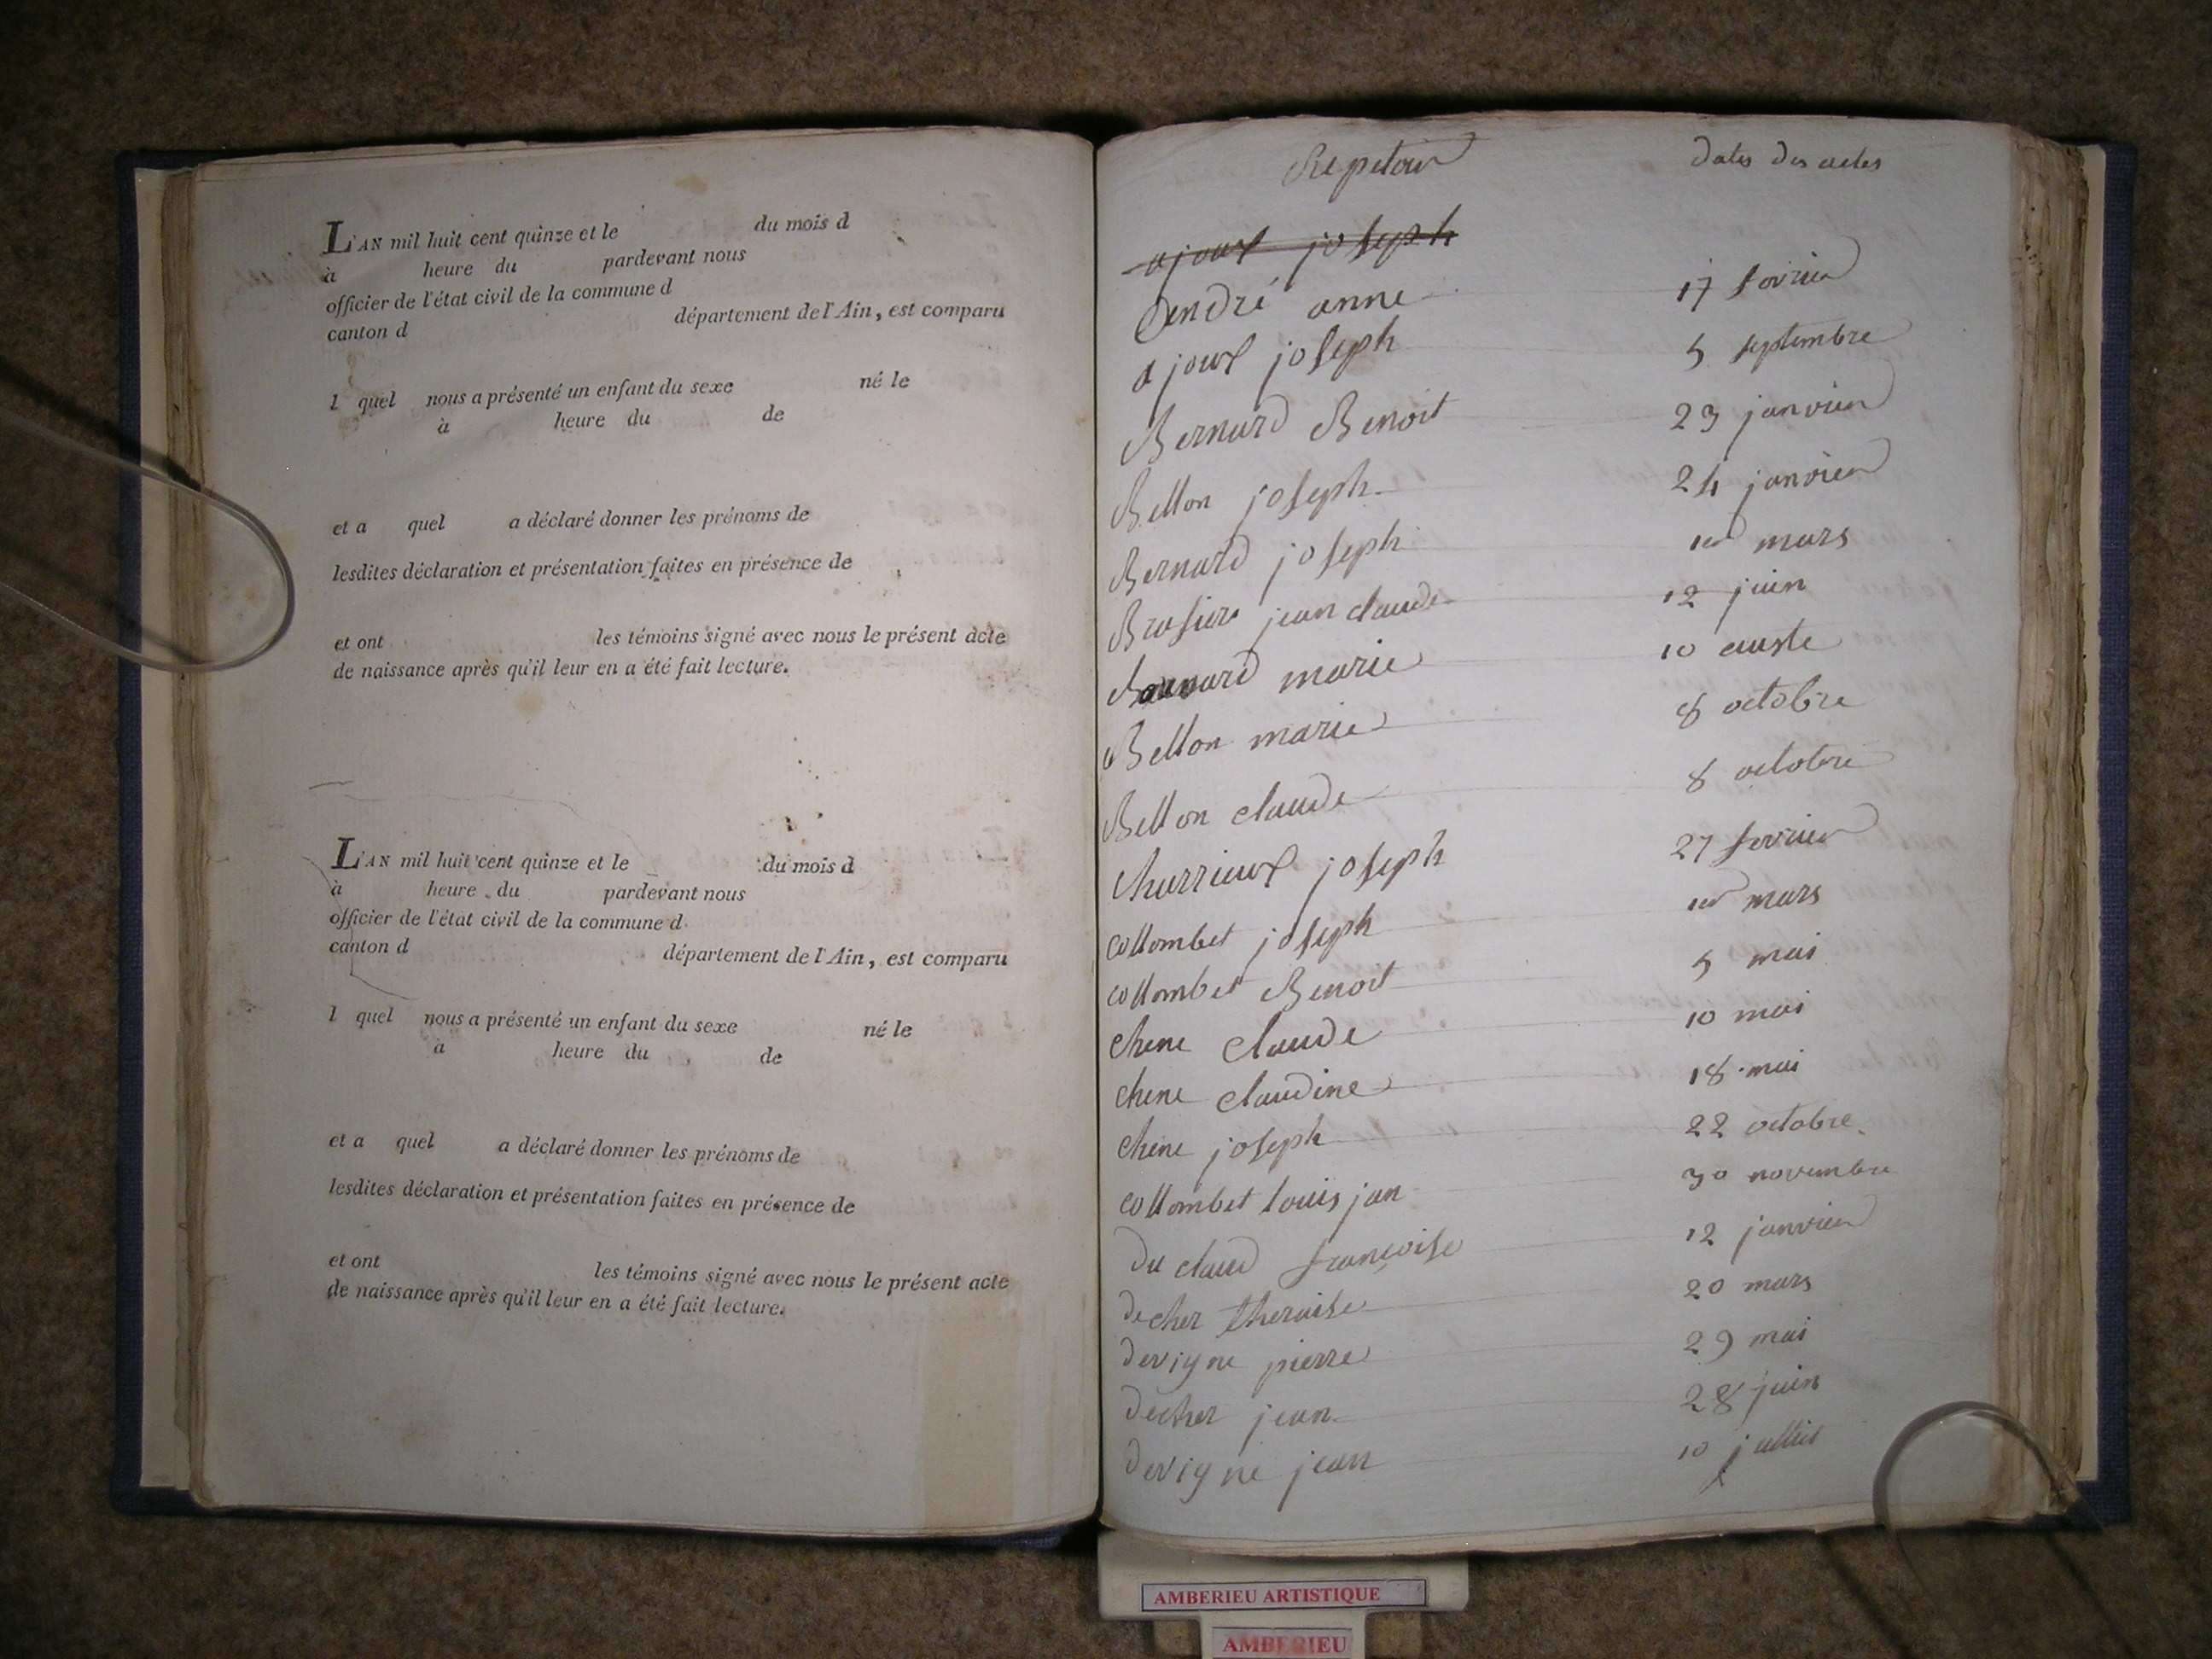 L'AN mil huit cent quinze et le du mois d
à heure du pardevant nous
officier de l'état civil de la commune d
canton d département de l'Ain, est comparu
l quel nous a présenté un enfant du sexe né le
à heure du de
et a quel a déclaré donner les prénoms de
lesdites déclaration et présentation faites en présence de
et ont les témoins signé avec nous le présent acte
de naissance après qu'il leur en a été fait lecture.
L'AN mil huit cent quinze et le du mois d
à heure du pardevant nous
officier de l'état civil de la commune d
canton d département de l'Ain, est comparu
l quel nous a présenté un enfant du sexe né le
à heure du de
et a quel a déclaré donner les prénoms de
lesdites déclaration et présentation faites en présence de
et ont les témoins signé avec nous le présent acte
de naissance après qu'il leur en a été fait lecture.
dates des actes
ajoux joseph
andré anne 17 fevrier
ajoux joseph 5 septembre
Bernard Benoit 23 janvier
Bellon joseph 24 janvier
Bernard joseph 1er mars
jean claude 12 juin
marie 10 auste
Bellon marie 8 octobre
Bellon claude 8 octobre
charrieux joseph 27 fevrier
collombet joseph 1er mars
collombet Benoit 5 mai
chene claude 10 mai
chene claudine 18 mai
chene joseph 22 octobre
collombet louis jan 30 novembre
du claud françoise 12 janvier
decher theraise 20 mars
devigne pierre 29 mai
decher jean 28 juin
devigne jean 10 jullit
AMBERIEU ARTISTIQUE
AMBERIEU